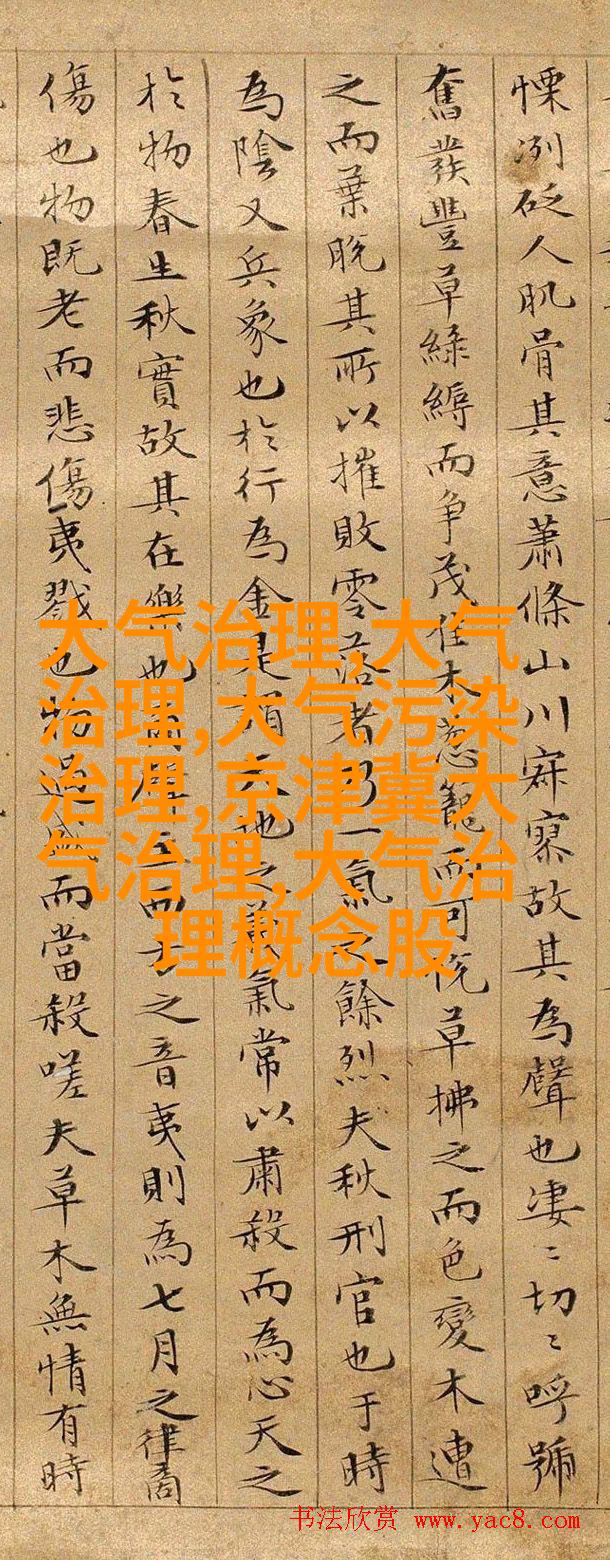 慄冽砭人肌骨其意蕭條山川寂寥故其為聲也淒〻切〻呼號
奮發豐草綠縟而争茂佳木葱籠而可悅草拂之而色變木遭
之而葉脫其所以摧敗零落者乃一氣之餘烈夫秋刑官也于時
為陰又兵象也於行為金是謂天地之義氣常以肅殺而為心天之
於物春生秋實故其在樂也商聲主西方之音夷則為七月之律商
傷也物既老而悲傷夷戮也物過盛而當殺嗟夫草木無情有時
大气治理,大气
治理,大气污染
治理,京津冀大
气治理,大气治
理概念股
书法欣赏 www.yac8.com